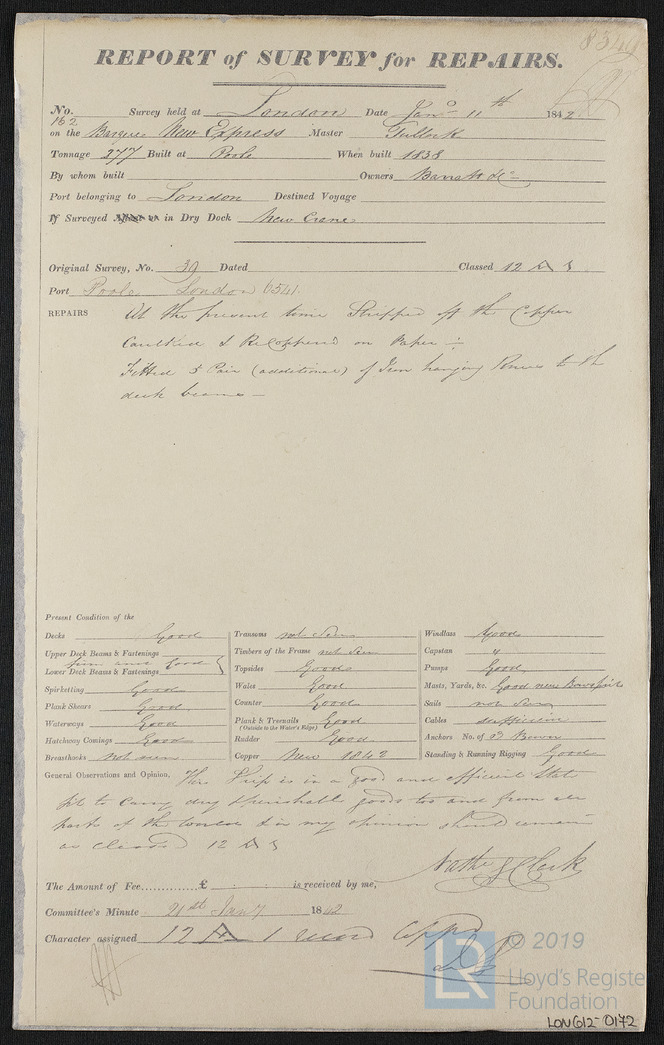 REPORT of SURVEY for REPAIRS.
No. 162 Survey held at London Date Jany 11th 1842
on the Barque New Express Master Tulloch
Tonnage 277 Built at Poole When built 1838
By whom built Owners Barratt & Co
Port belonging to London Destined Voyage
If Surveyed Afloat or in Dry Dock New Crane
Original Survey, No. 39 Dated Classed 12 A 1
Port Poole London 6541
REPAIRS At the present time Stripped off the Copper
Caulked & ReCoppered on Paper
Fitted 5 Pair (additional) of Iron hanging Knees to the
deck beams
Present Condition of the
Decks Good
Upper Deck Beams & Fastenings
Lower Deck Beams & Fastenings firm and Good
Spirketting Good
Plank Shears Good
Waterways Good
Hatchway Comings Good
Breasthooks not seen
Transoms not seen
Timbers of the Frame not seen
Topsides Good
Wales Good
Counter Good
Plank & Treenails Good
(Outside to the Water's Edge)
Rudder Good
Copper New 1842
Windlass Good
Capstan "
Pumps Good
Masts, Yards, &c. Good new Bowsprit
Sails not seen
Cables sufficient
Anchors No. of 2 Bower
Standing & Running Rigging Good
General Observations and Opinion, This Ship is in a good and efficient State
fit to carry dry & perishable goods to and from all
parts of the World & in my opinion should remain
as Classed 12 A 1
Nathl J Clark
The Amount of Fee £ is received by me,
Committee's Minute 21st Jany 1842
Character assigned 12 A 1 Coppd
© 2019
LR
Lloyd's Registe
Foundation
LON612-0172